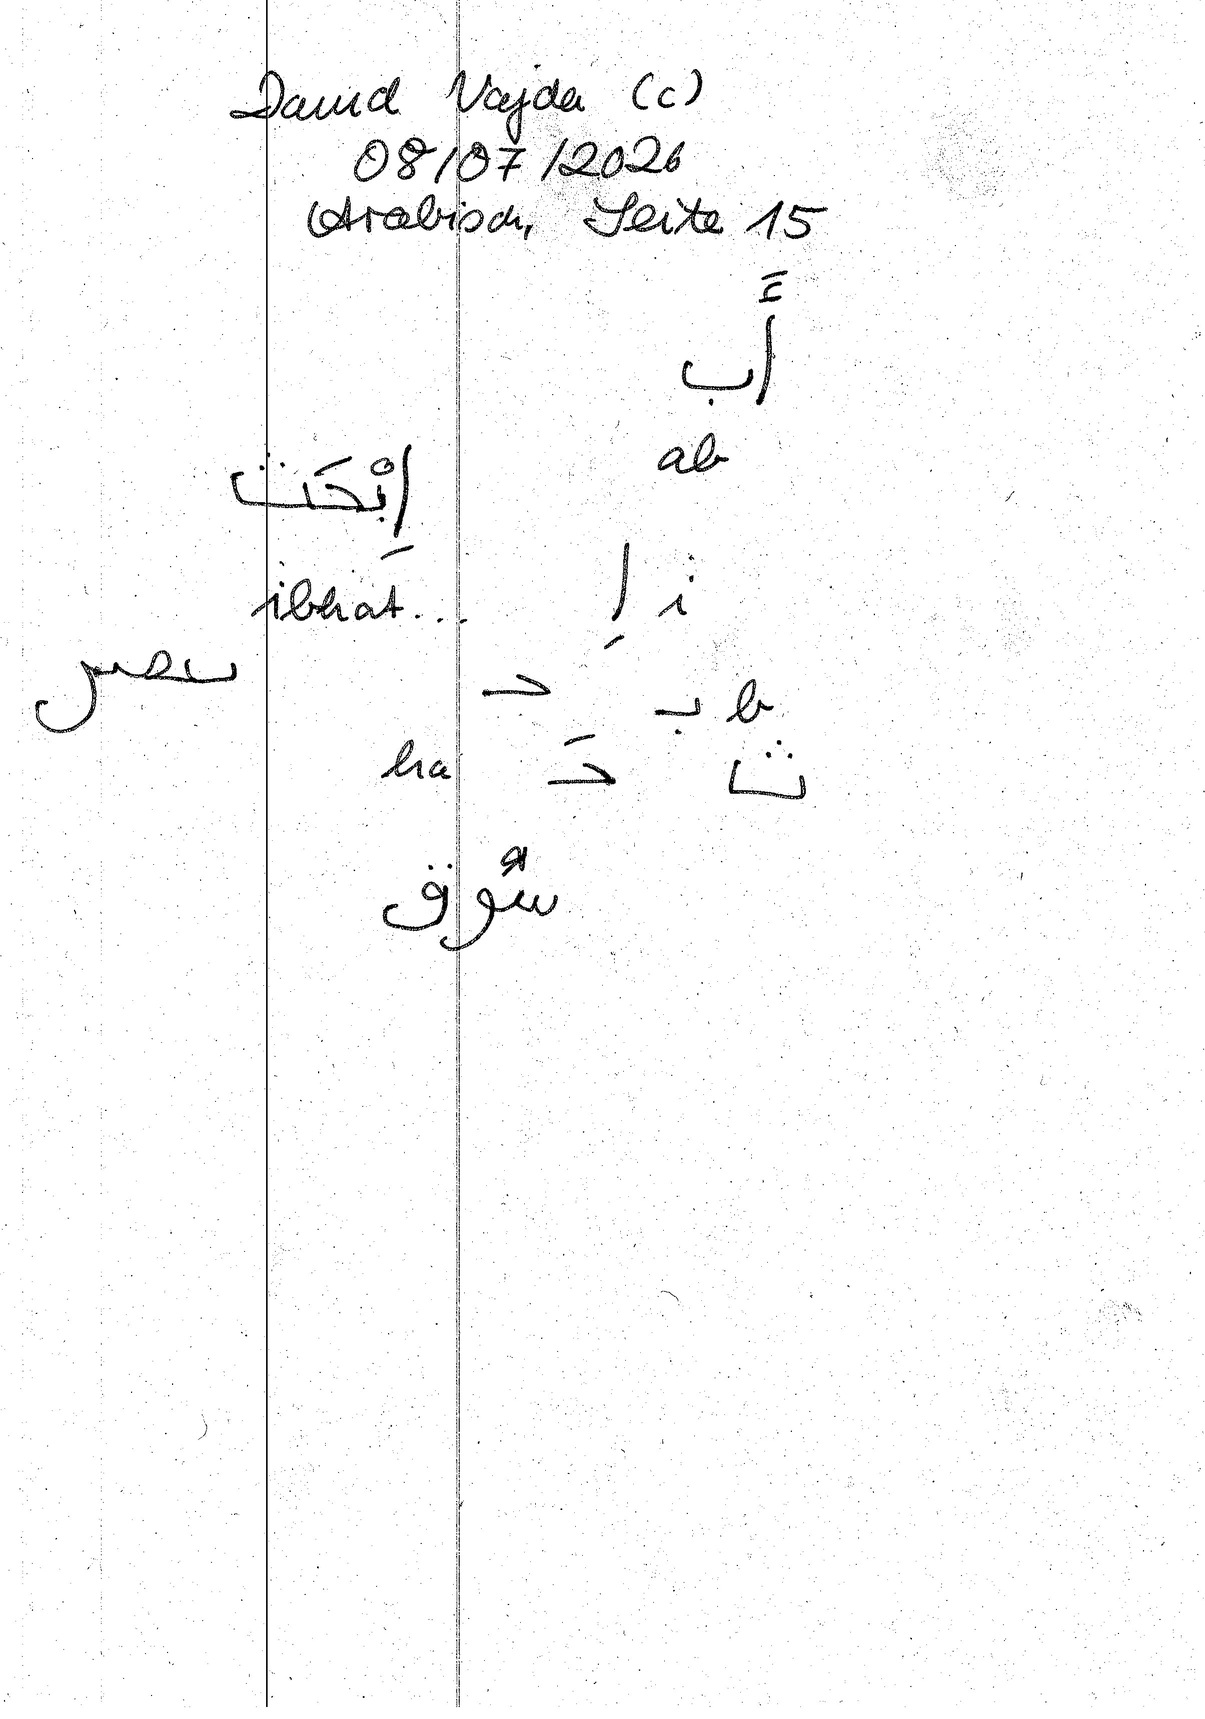 David Vajda (c)
08/07/2026
Arabisch, Seite 15
أَب
ab
إِبْحَث
ibhat...
إِ i
حـ بـ b
ha حَـ ث
سُوق